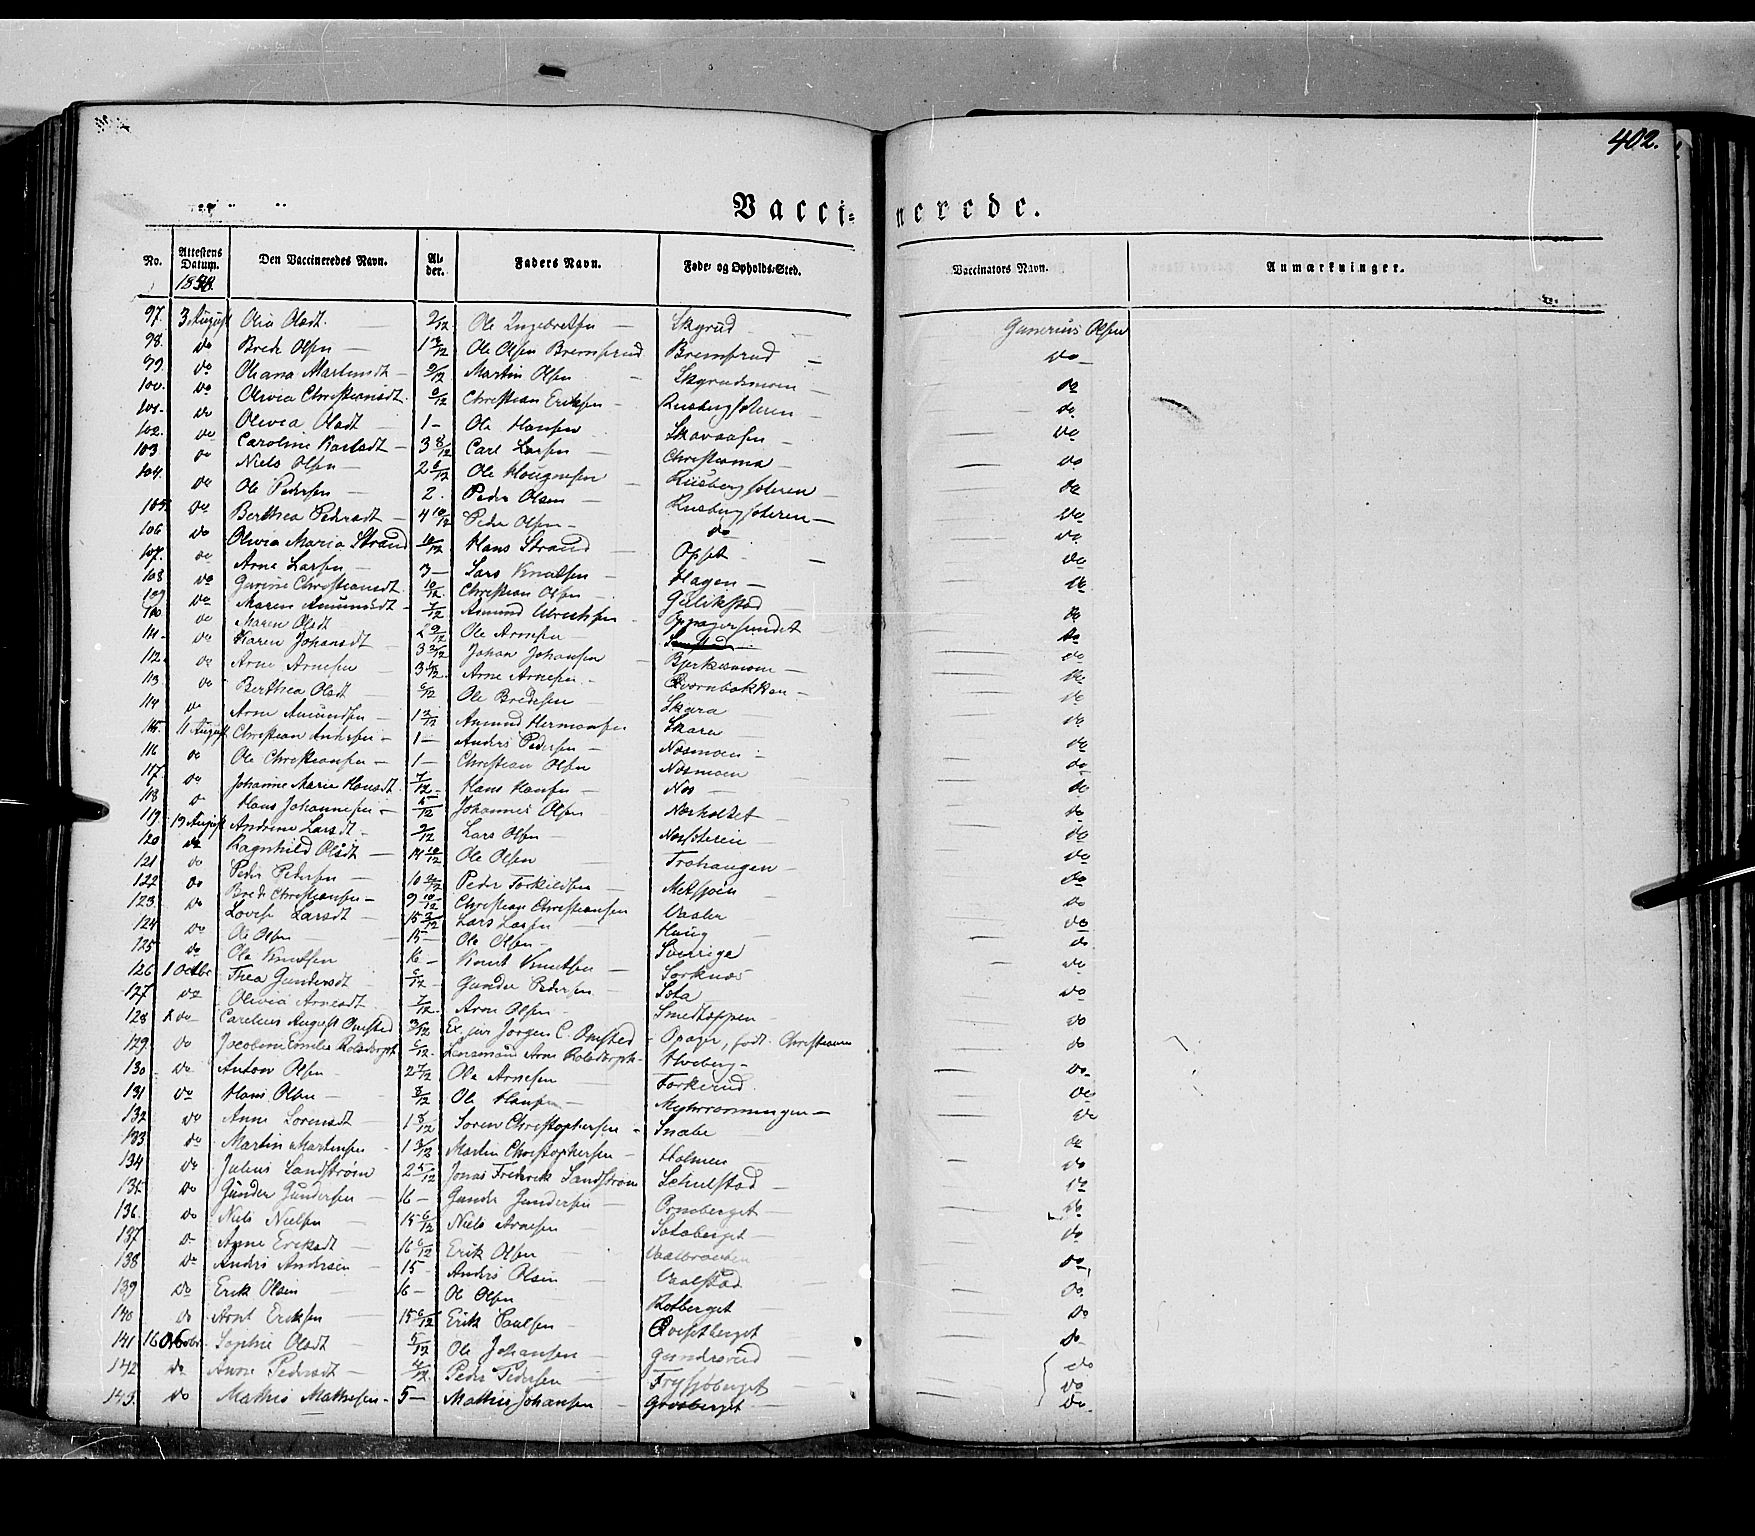 402.
Vacci- nerede.
No. Attestens Datum. Den Vaccineredes Navn. Al- der. Faders Navn. Føde- og Opholds-Sted. Vaccinators Navn. Anmærkninger.
1838.
97. 3 August Olia Olsdt. 9/12 Ole Ingebretsen Skyrud Gunerius Olsen
98. do Brede Olsen 1 Ole Olsen Bremsrud Bremsrud do
99. do Oliana Martinsdt 9/12 Martin Olsen Skyrudsmoen do
100. do Olivia Christiansdt. Christian Eriksen Rusbergsæteren do
101. do Olivia Olsdt 1 - Ole Hansen Skavaasen do
102. do Caroline Karlsdt 3 8/12 Carl Larsen Christiania do
103 do Niels Olsen 2 6/12 Ole Rusbergsæteren do
104. do Ole Pedersen 2. Peder Olsen Rusbergsæteren do
105. do Berthea Pedersdt 4 10/12 Peder Olsen do do
106 do Olivia Maria Strand 10/12 Hans Strand Opset do
107. do Arne Larsen 3 Lars Knutsen Hagen do
108 do Gurine Christiansdt 10/12 Christian Olsen do
109 do Maren Amundsdt 7/12 Amund do
110 do Maren Olsdt 2 9/12 Ole Arnesen do
111. do Karen Johansdt 3 Johan Johansen Bjerkesmoen do
112. do Arne Arnesen 3 Arne Arnesen Qvernbakken do
113 do Berthea Olsdt 6/12 Ole Bredesen Skara do
114 do Arne Amundsen 1 Amund Hermansen Skara do
115. 11 August Christian Andersen 1 - Anders Pedersen Nosmoen do
116 do Ole Christiansen 1 - Christian Olsen Nosmoen do
117 do Johanne Marie Hansdt 7/12 Hans Hansen Nos do
118 do Hans Johannesen Johannes Olsen Norholtet do
119 19 August Andrine Larsdt 9/12 Lars Olsen Norsæteren do
120 do Ragnhild Olsdt 14 10/12 Ole Olsen Trohaugen do
121 do Peder Pedersen 10 Peder Torkildsen do
122 do Brede Christiansen 9 10/12 Christian Christiansen Vaaler do
123. do Lovise Larsdt 15 Lars Larsen Haug do
124 do Ole Olsen 15 Ole Olsen Sverrige do
125 do Ole Knutsen 16 Knut Knutsen Sorknes do
126 1 Octbr Thea Gundersdt 6/12 Gunder Pedersen Sota do
127 do Olivia Arnesdt 7/12 Arne Olsen Smedtoppen do
128 do Carelius August Omsted Jørgen C. Omsted Opager, født Christiania do
129 do Jacobine Emilie Rolsdorph 6/12 Lensmand Arne Rolsdorph Hveberg do
130 do Anton Olsen 2 7/12 Ole Arnesen Torkerud do
131 do Hans Olsen 8/12 Ole Hansen do
132 do Anne Sorensdt 1 8/12 Soren Christophersen Snabe do
133 do Martin Martinsen 1 Martin Christophersen Holmen do
134 do Julius Sandstrøm 2 5/12 Jonas Frederik Sandstrøm Schulstad do
135 do Gunder Gundersen 16 Gunder Gundersen Orneberget do
136. do Niels Nielsen 15 6/12 Niels Arnesen Sotaberget do
137 do Anne Eriksdt 16 6/12 Erik Olsen do
138 do Anders Andersen 15 Anders Olsen Vaalstad do
139 do Erik Olsen 16 Ole Olsen Rotberget do
140 do Arnt Eriksen 15 6/12 Erik Paulsen Qvestberget do
141 16 Octobr Sophie Olsdt 5/12 Ole Johansen Gundersrud do
142 do Anne Pedersdt 4/12 Peder Pedersen Frysjøberget do
143. do Mathis Mathisen 5 Mathis Johansen do